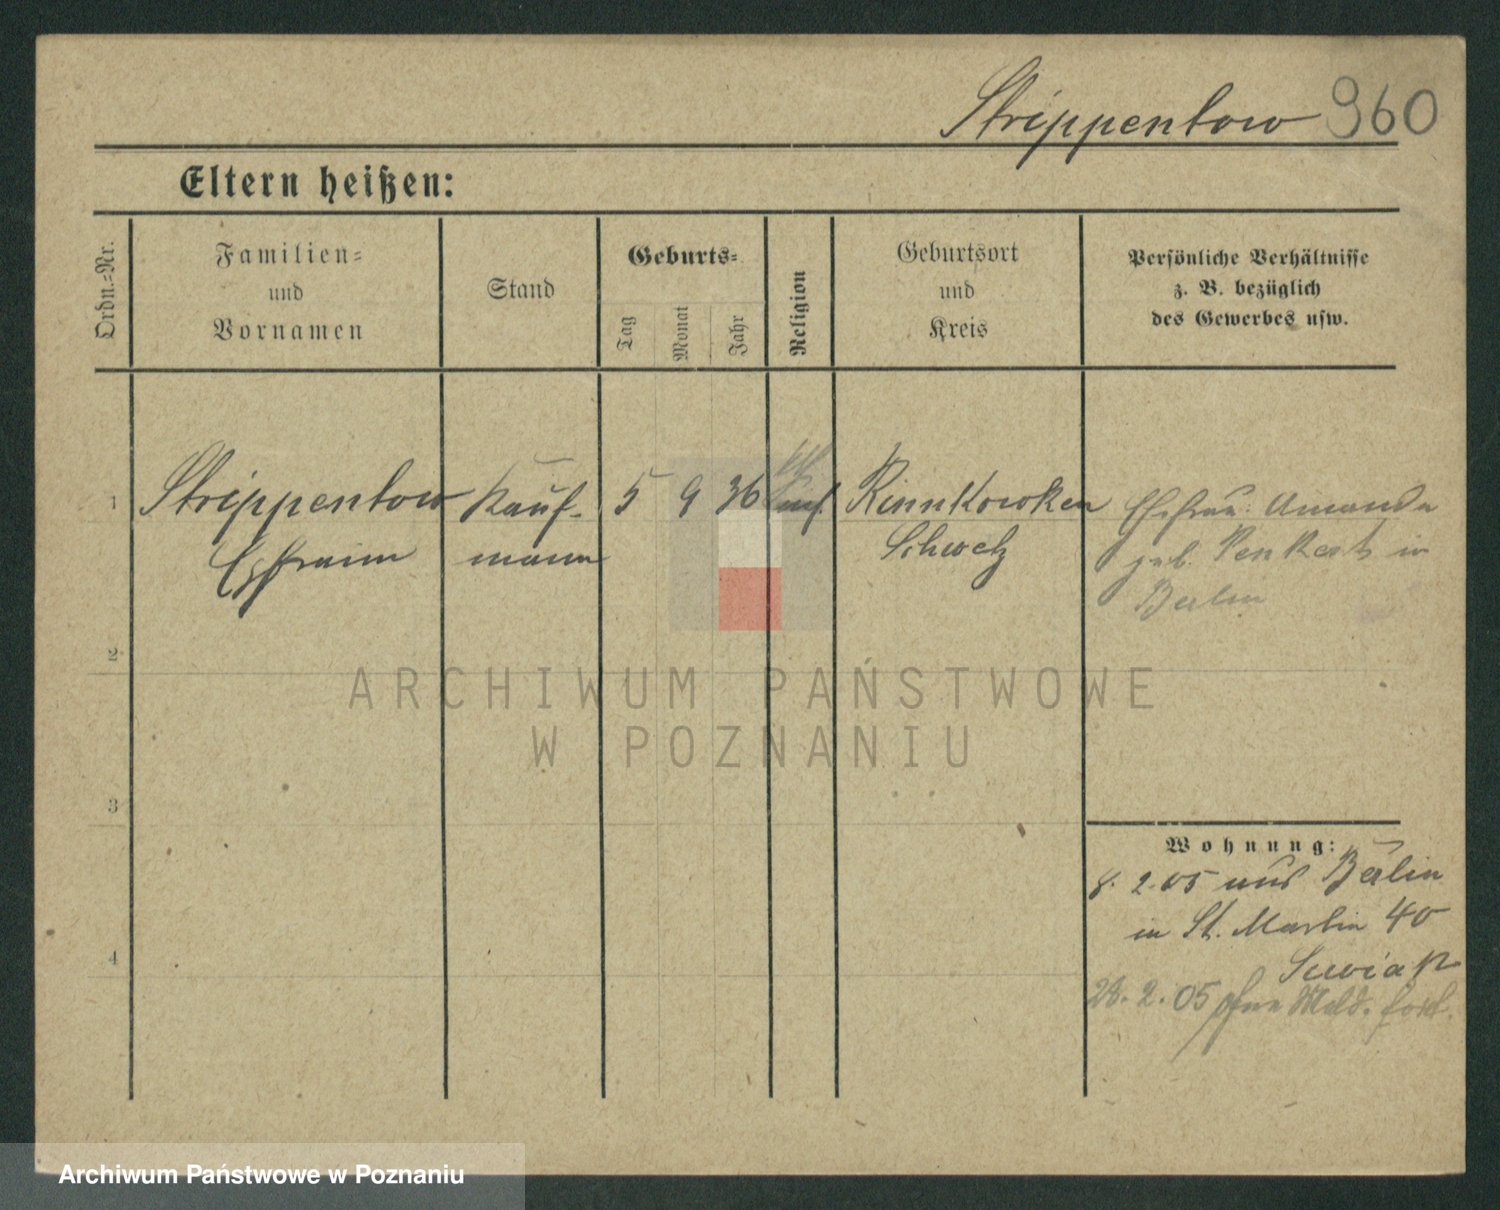 Strippentow 960
Eltern heißen:
Ordn.=Nr.
Familien=
und
Vornamen
Stand
Geburts=
Tag
Monat
Jahr
Religion
Geburtsort
und
Kreis
Persönliche Verhältnisse
z. B. bezüglich
des Gewerbes usw.
1 Strippentow Kauf- 5 9 36 Ehefrau: Amanda
Ephraim mann Schwetz geb. in
Berlin
2
ARCHIWUM PAŃSTWOWE
W POZNANIU
3
Wohnung:
8. 2. 05 aus Berlin
in St. Martin 40
4
28. 2. 05 ohne Meld. fort.
Archiwum Państwowe w Poznaniu